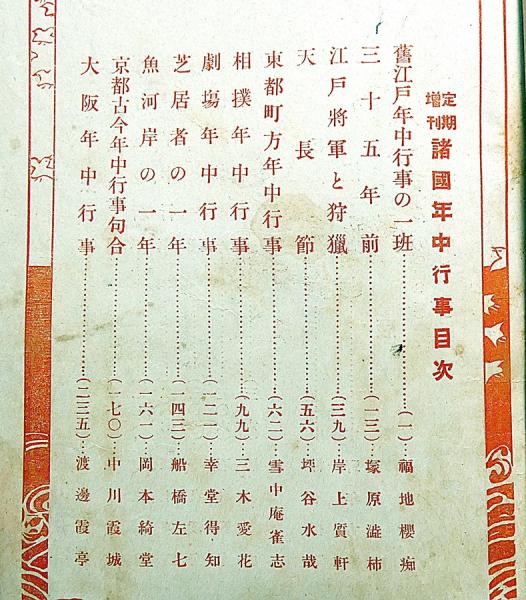 定期增刊 諸國年中行事目次
舊江戸年中行事の一班……(一)…福地櫻痴
三十五年前……(一三)…塚原澁柿
江戸將軍と狩獵……(三九)…岸上質軒
天長節……(五六)…坪谷水哉
東都町方年中行事……(六二)…雪中庵雀志
相撲年中行事……(九九)…三木愛花
劇塲年中行事……(一二一)…幸堂得知
芝居者の一年……(一四三)…船橋左七
魚河岸の一年……(一六一)…岡本綺堂
京都古今年中行事句合……(一七〇)…中川霞城
大阪年中行事……(二三五)…渡邊霞亭